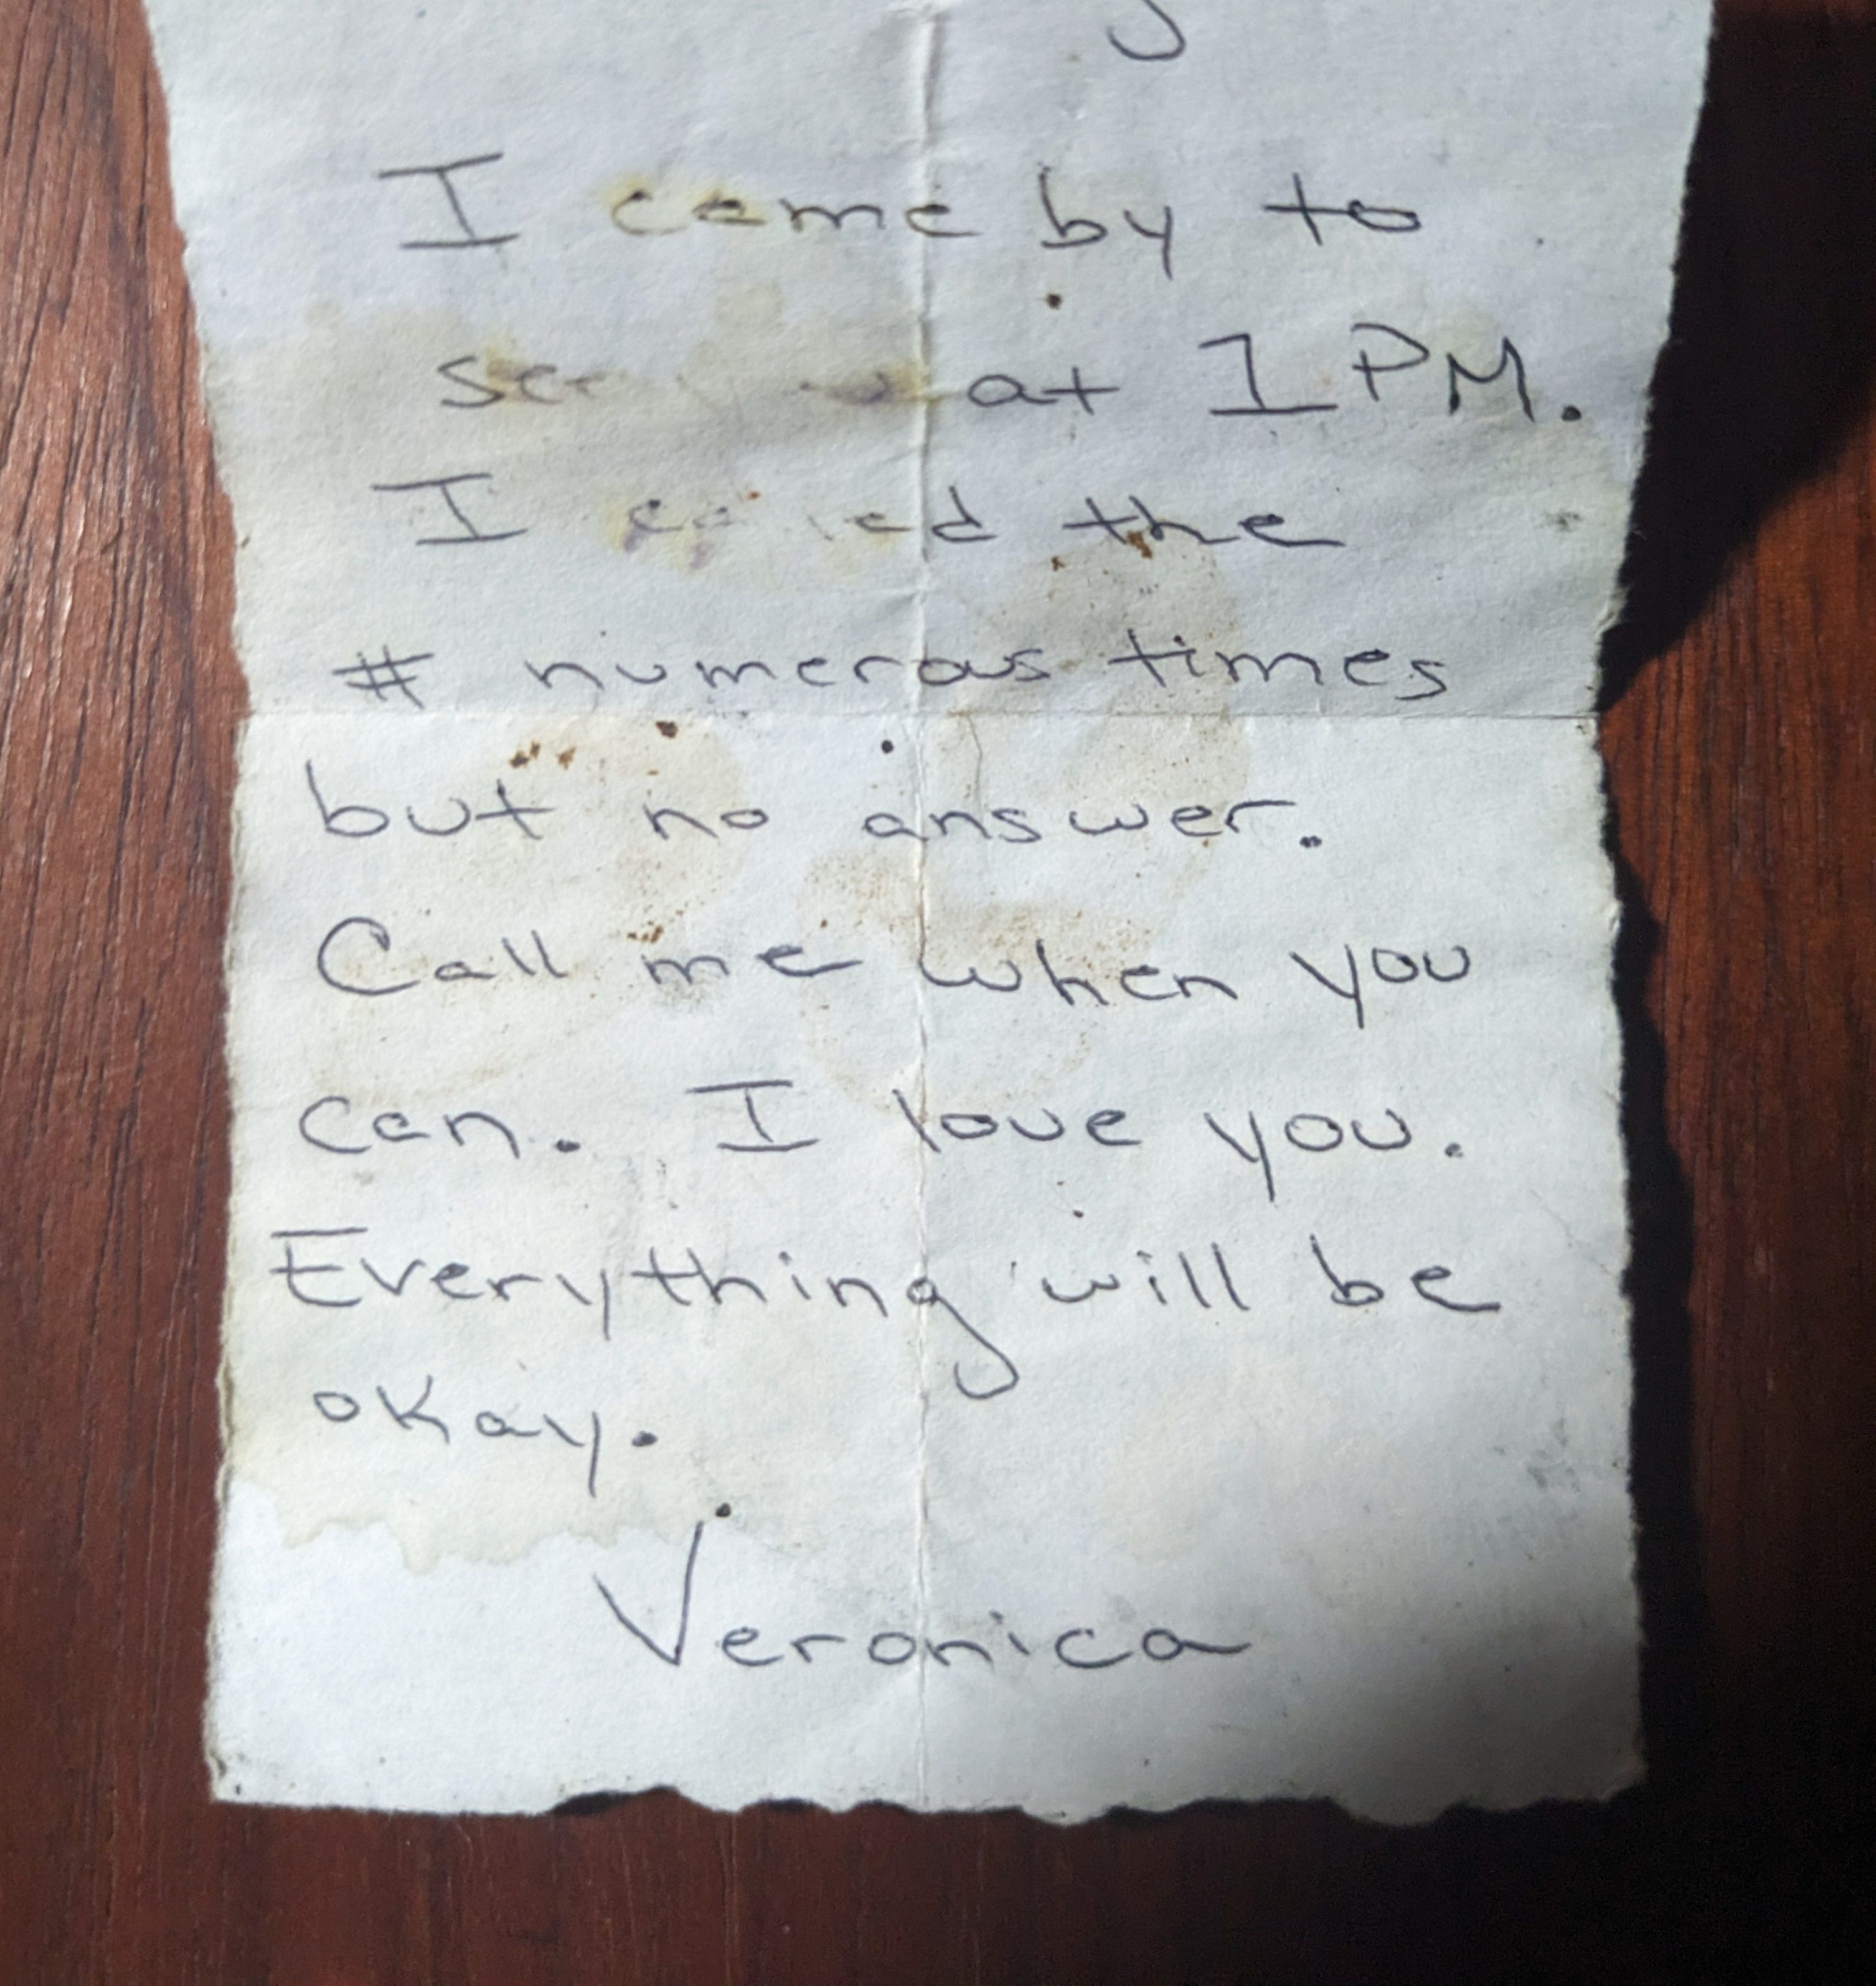 I came by to
see you at 1 PM.
I called the
# numerous times
but no answer.
Call me when you
can. I love you.
Everything will be
okay.
Veronica